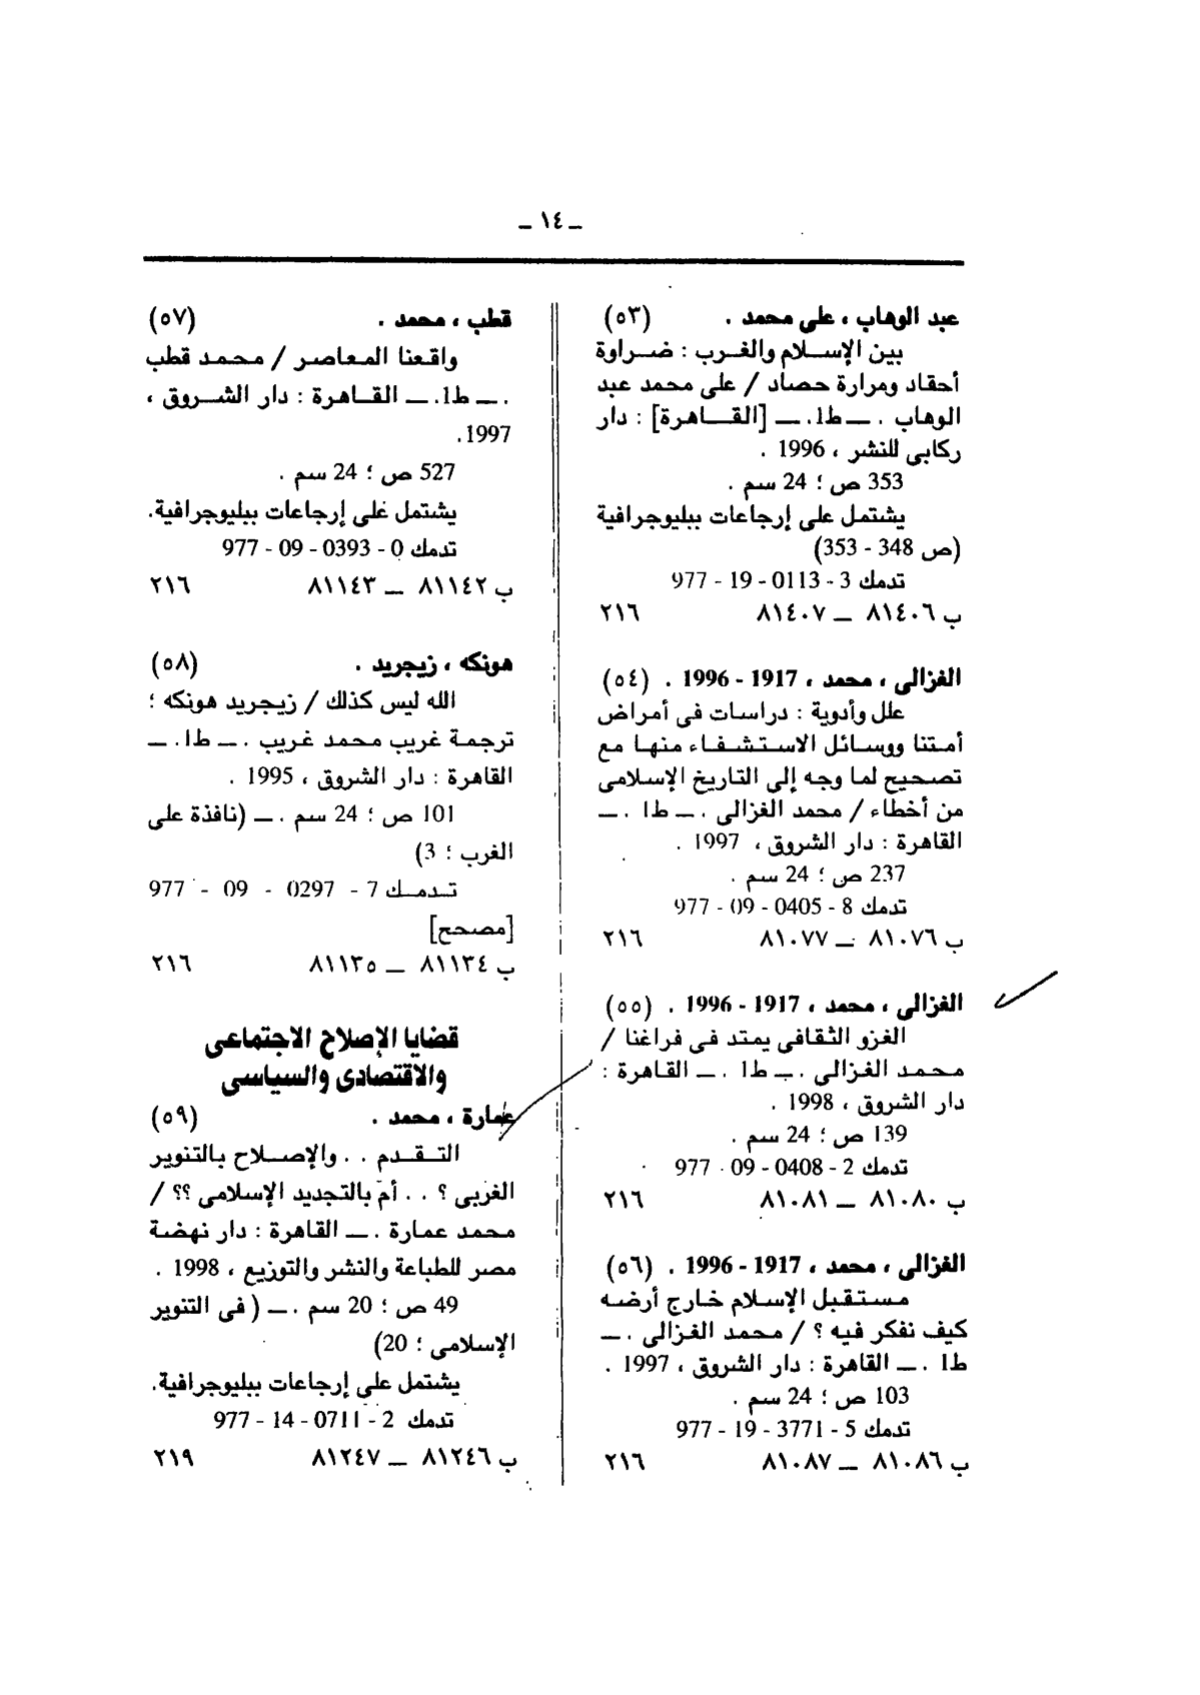 ـ ١٤ ـ
عبد الوهاب ، على محمد . (٥٣)
بين الإسلام والغرب : ضراوة
أحقاد ومرارة حصاد / على محمد عبد
الوهاب . ــ ط1. ــ [القاهرة] : دار
ركابى للنشر ، 1996 .
353 ص ؛ 24 سم .
يشتمل على إرجاعات ببليوجرافية
(ص 348 - 353)
تدمك 3 - 0113 - 19 - 977
ب ٨١٤٠٦ ــ ٨١٤٠٧ ٢١٦
الغزالى ، محمد ، 1917 - 1996 . (٥٤)
علل وأدوية : دراسات فى أمراض
أمتنا ووسائل الاستشفاء منها مع
تصحيح لما وجه إلى التاريخ الإسلامى
من أخطاء / محمد الغزالى . ــ ط1 . ــ
القاهرة : دار الشروق ، 1997 .
237 ص ؛ 24 سم .
تدمك 8 - 0405 - 09 - 977
ب ٨١٠٧٦ ــ ٨١٠٧٧ ٢١٦
الغزالى ، محمد ، 1917 - 1996 . (٥٥)
الغزو الثقافى يمتد فى فراغنا /
محمد الغزالى . ــ ط1 . ــ القاهرة :
دار الشروق ، 1998 .
139 ص ؛ 24 سم .
تدمك 2 - 0408 - 09 - 977
ب ٨١٠٨٠ ــ ٨١٠٨١ ٢١٦
الغزالى ، محمد ، 1917 - 1996 . (٥٦)
مستقبل الإسلام خارج أرضه
كيف نفكر فيه ؟ / محمد الغزالى . ــ
ط1 . ــ القاهرة : دار الشروق ، 1997 .
103 ص ؛ 24 سم .
تدمك 5 - 3771 - 19 - 977
ب ٨١٠٨٦ ــ ٨١٠٨٧ ٢١٦
قطب ، محمد . (٥٧)
واقعنا المعاصر / محمد قطب
. ــ ط1. ــ القاهرة : دار الشروق ،
1997.
527 ص ؛ 24 سم .
يشتمل على إرجاعات ببليوجرافية.
تدمك 0 - 0393 - 09 - 977
ب ٨١١٤٢ ــ ٨١١٤٣ ٢١٦
هونكه ، زيجريد . (٥٨)
الله ليس كذلك / زيجريد هونكه ؛
ترجمة غريب محمد غريب . ــ ط1. ــ
القاهرة : دار الشروق ، 1995 .
101 ص ؛ 24 سم . ــ (نافذة على
الغرب ؛ 3)
تدمك 7 - 0297 - 09 - 977
[مصحح]
ب ٨١١٣٤ ــ ٨١١٣٥ ٢١٦
قضايا الإصلاح الاجتماعى
والاقتصادى والسياسى
عمارة ، محمد . (٥٩)
التقدم . . والإصلاح بالتنوير
الغربى ؟ . . أم بالتجديد الإسلامى ؟؟ /
محمد عمارة . ــ القاهرة : دار نهضة
مصر للطباعة والنشر والتوزيع ، 1998 .
49 ص ؛ 20 سم . ــ ( فى التنوير
الإسلامى ؛ 20)
يشتمل على إرجاعات ببليوجرافية.
تدمك 2 - 0711 - 14 - 977
ب ٨١٢٤٦ ــ ٨١٢٤٧ ٢١٩